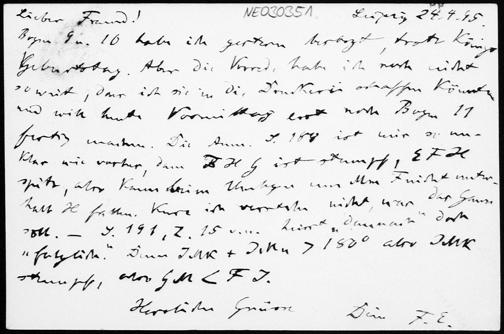 NE030351
Lieber Freund! Leipzig 24.4.95.
Bogen 9 u. 10 habe ich gestern besorgt, trotz Königs
Geburtstag. Aber die Vorrede habe ich noch nicht
so weit, dass ich sie in die Druckerei schaffen könnte
und will heute Vormittag erst noch Bogen 11
fertig machen. Die Anm. S. 188 ist mir so un-
klar wie vorher, dass F H G ist stumpf, E F H
spitz, aber kann beim F nicht unter-
halb H fallen. Kurz ich verstehe nicht, was das Ganze
soll. — S. 191, Z. 15 v. u. heisst „demnach“ doch
„folglich“. Denn JMK + JKM > 180° also JMK
stumpf, also GM < F J.
Herzliche Grüsse
Dein F. E.